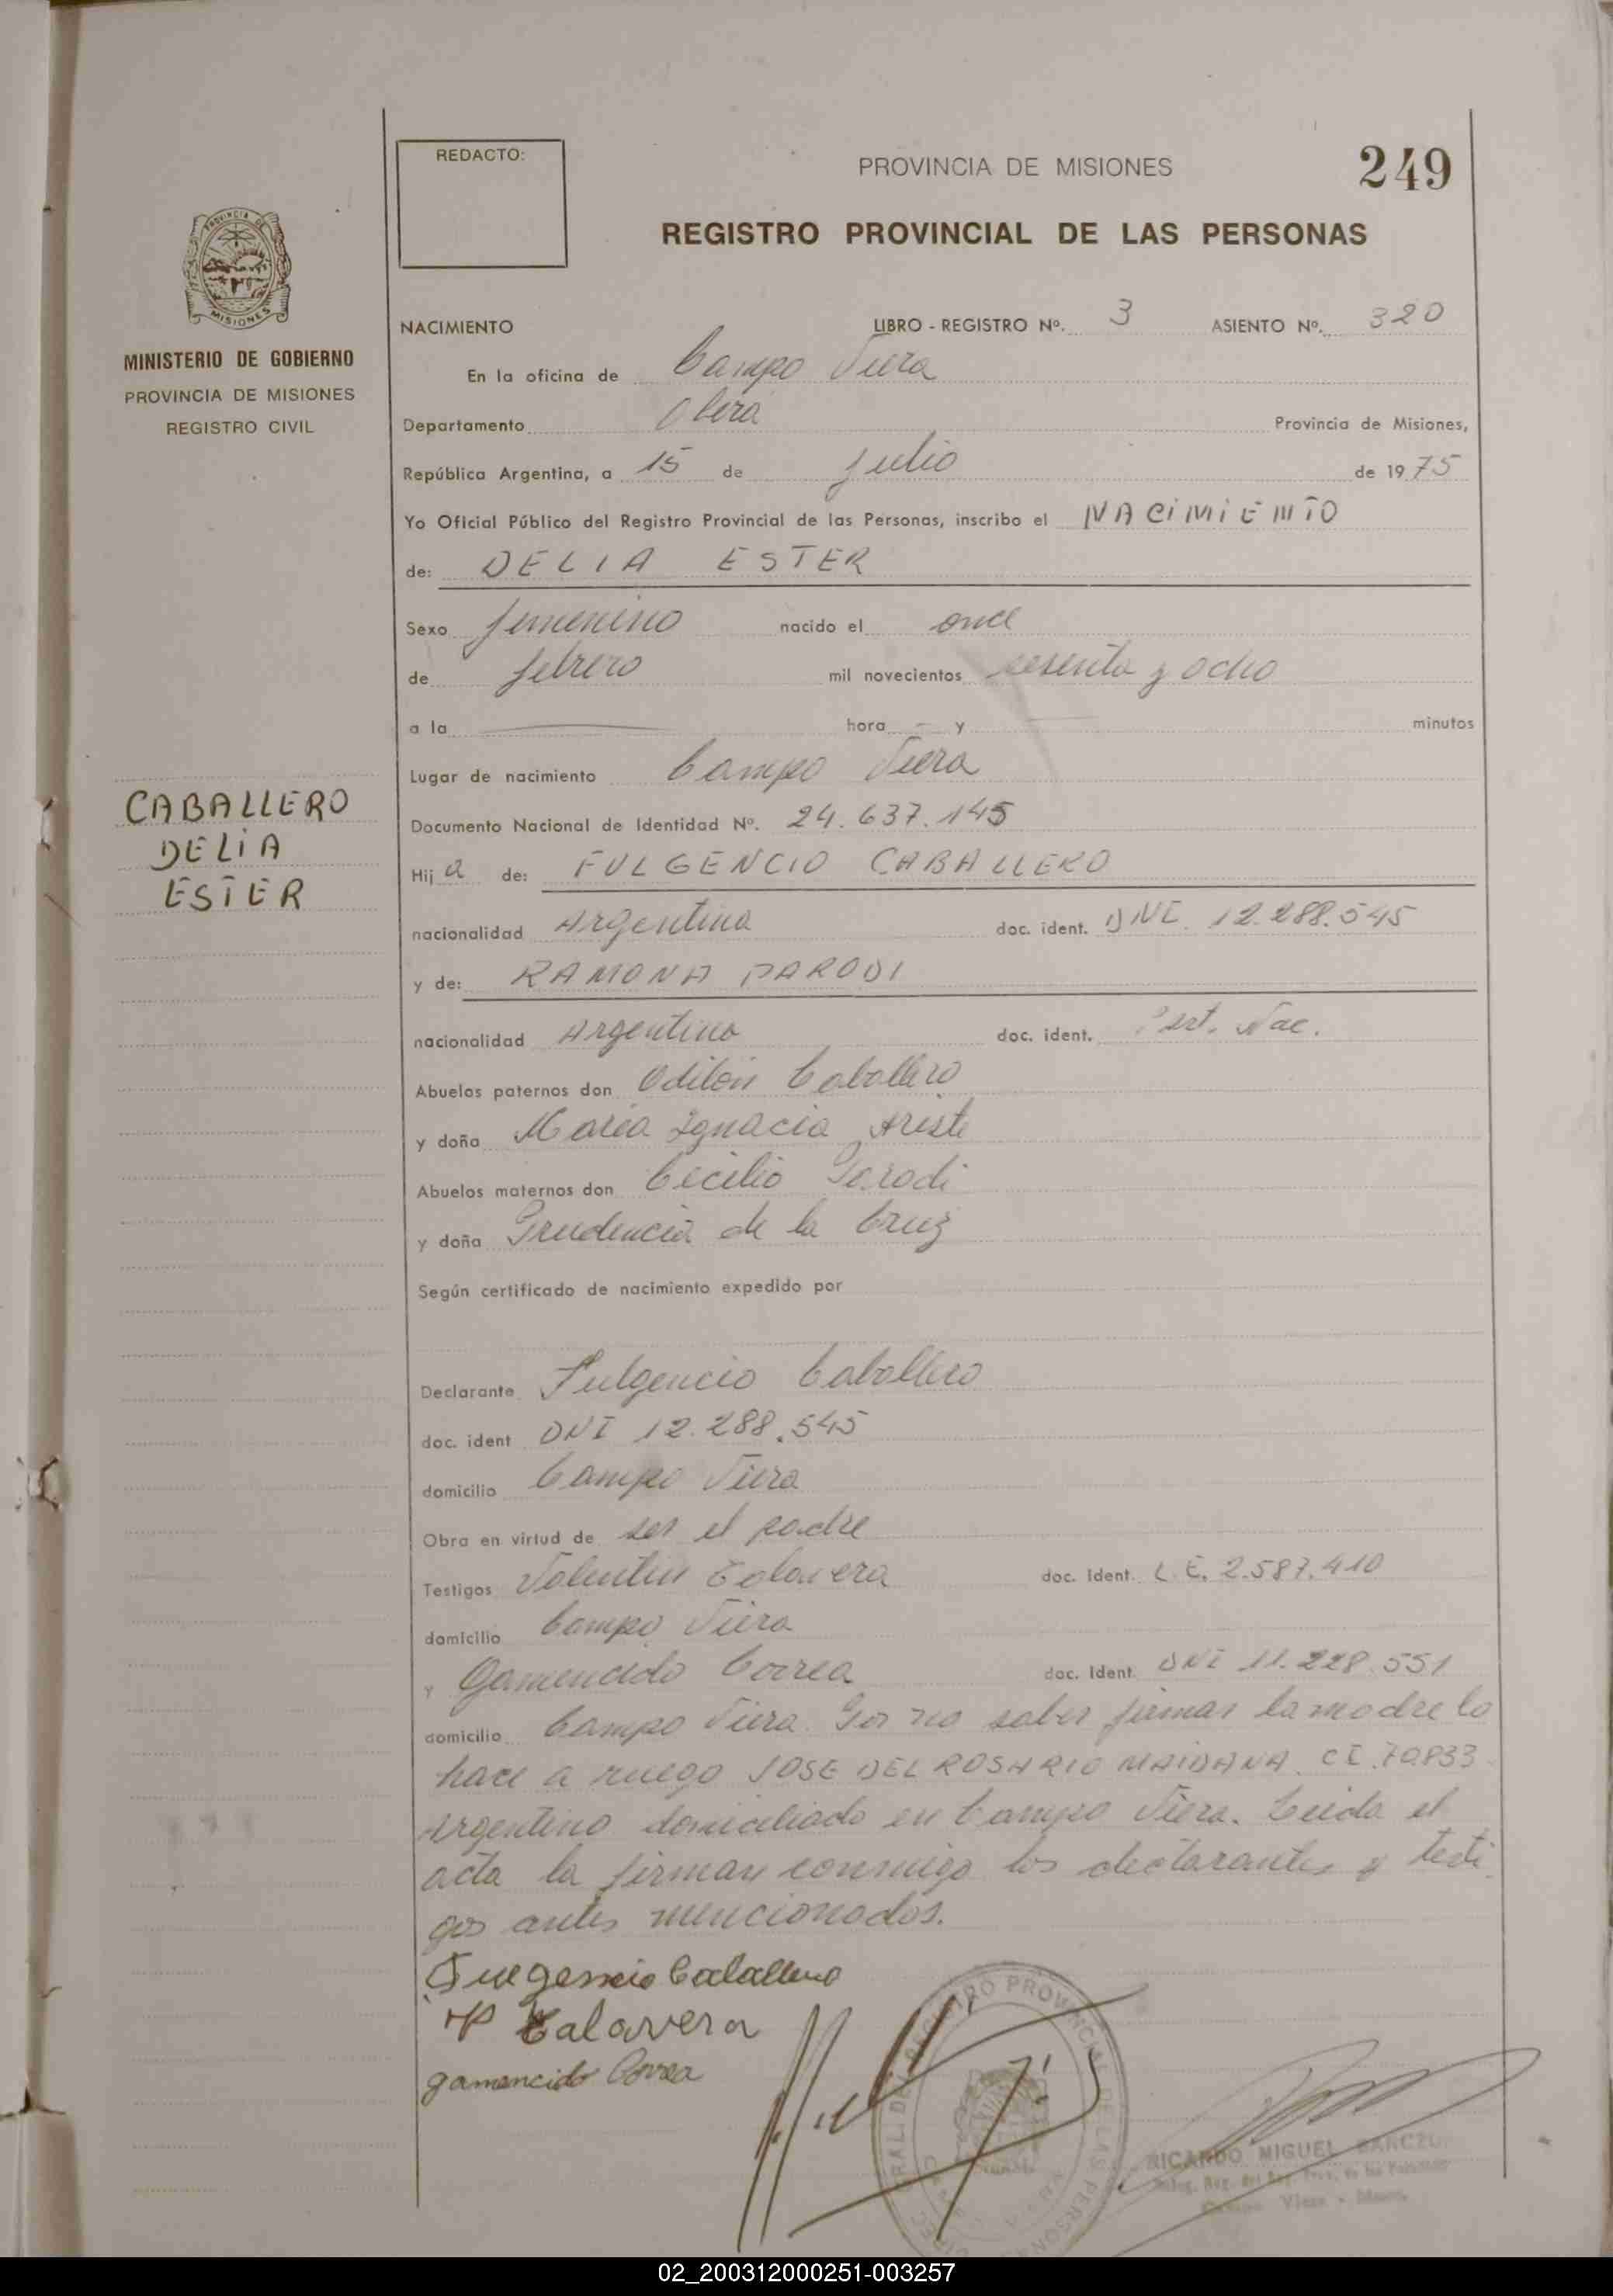 REDACTO:
PROVINCIA DE MISIONES
249
REGISTRO PROVINCIAL DE LAS PERSONAS
PROVINCIA DE
MISIONES
MINISTERIO DE GOBIERNO
PROVINCIA DE MISIONES
REGISTRO CIVIL
NACIMIENTO LIBRO - REGISTRO Nº. 3 ASIENTO Nº. 320
En la oficina de Campo Viera
Departamento Oberá Provincia de Misiones,
República Argentina, a 15 de julio de 1975
Yo Oficial Público del Registro Provincial de las Personas, inscribo el NACIMIENTO
de: DELIA ESTER
Sexo femenino nacido el once
de febrero mil novecientos sesenta y ocho
a la hora y minutos
Lugar de nacimiento Campo Viera
CABALLERO
DELIA
ESTER
Documento Nacional de Identidad Nº. 24.637.145
Hija de: FULGENCIO CABALLERO
nacionalidad Argentina doc. ident. DNI. 12.288.545
y de: RAMONA PARODI
nacionalidad Argentina doc. ident. Part. Nac.
Abuelos paternos don Odilón Caballero
y doña María Ignacia Ariste
Abuelos maternos don Cecilio Parodi
y doña Prudencia de la Cruz
Según certificado de nacimiento expedido por
Declarante Fulgencio Caballero
doc. ident DNI 12.288.545
domicilio Campo Viera
Obra en virtud de ser el padre
Testigos Valentin Talavera doc. Ident. L.E. 2.587.410
domicilio Campo Viera
Y Gamencido Correa doc. Ident. DNI 11.228.551
domicilio Campo Viera. Por no saber firmar la madre lo
hace a ruego JOSE DEL ROSARIO MAIDANA. CI.70833
Argentino domiciliado en Campo Viera. Leida el
acta la firman conmigo los declarantes y testi
gos antes mencionados.
Fulgencio Caballero
Talavera
gamencido Correa
REGISTRO PROVINCIAL DE LAS PERSONAS
RICARDO MIGUEL
Campo Viera - Mnes.
02_200312000251-003257